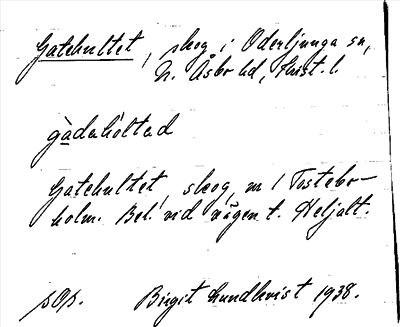 Gatehultet, skog i Oderljunga sn,
N. Åsbo hd, Krist. l.
gàdahöltad
Gatehultet, skog, m / Tostebo-
holm. Bel. vid vägen t. Heljalt.
pOp. Birgit Lundkvist 1938.